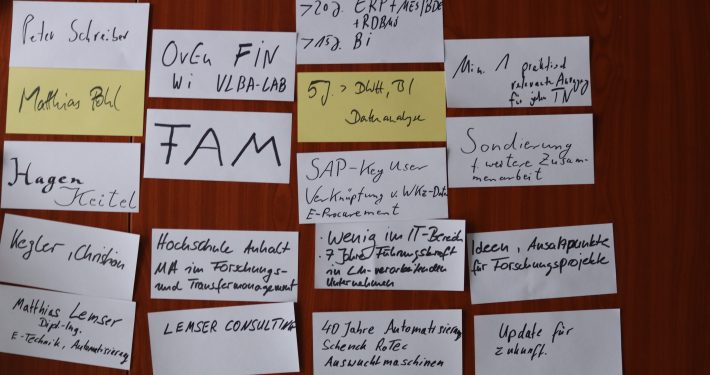 Peter Schreiber
Matthias Pohl
Hagen
Keitel
Kegler, Christian
Matthias Lemser
Dipl-Ing.
E-Technik, Automatisierung
OvGU FIN
Wi VLBA-LAB
FAM
Hochschule Anhalt
MA im Forschungs-
und Transfermanagement
LEMSER CONSULTING
>20 J. ERP + MES/BDE
+ RDBMS
>15 J. Bi
5 J. > DWH, BI
Datenanalyse
SAP-Key User
Verknüpfung v. WKz-Daten
E-Procurement
· Wenig im IT-Bereich
· 7 Jahre Führungskraft
in verarbeitenden
Unternehmen
40 Jahre Automatisierung
Schenck RoTec
Auswuchtmaschinen
Min. 1 praktisch
relevante
für jeden TN
Sondierung
+ weitere Zusam-
menarbeit
Ideen, Ansatzpunkte
für Forschungsprojekte
Update für
Zukunft.